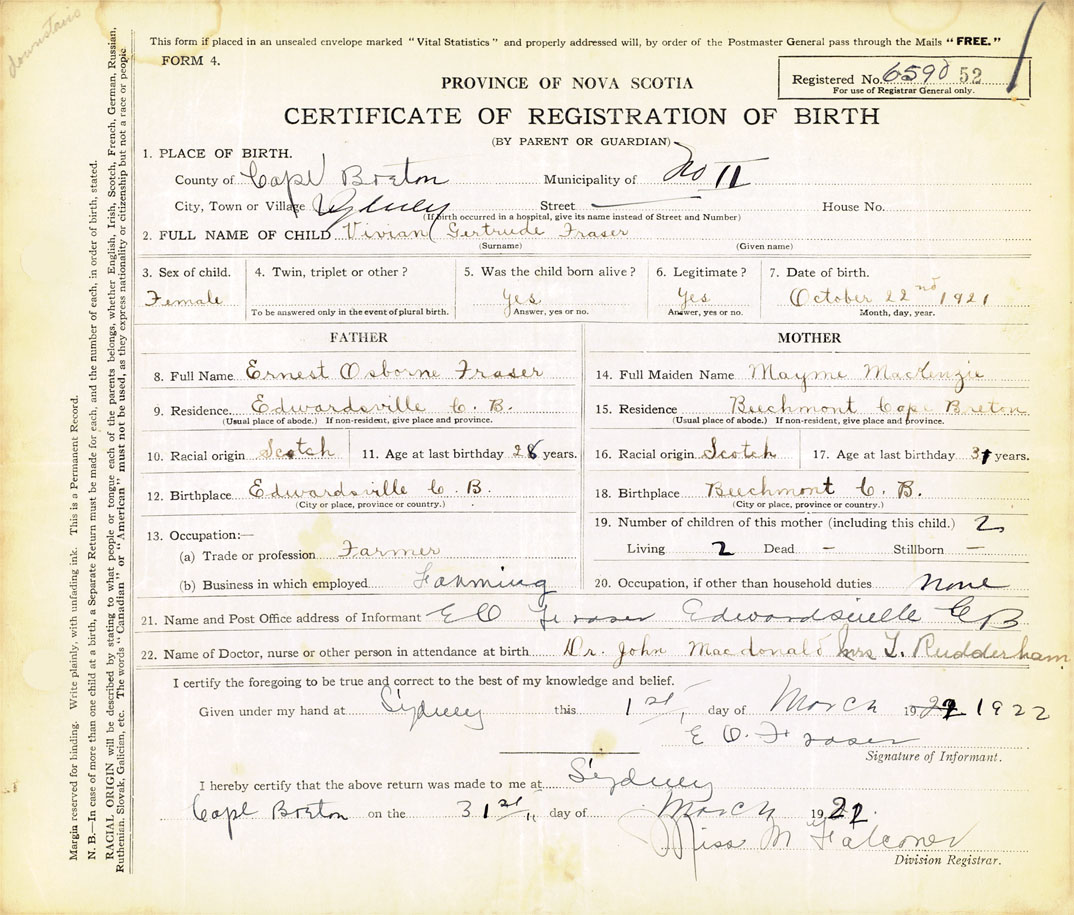 downstairs
This form if placed in an unsealed envelope marked "Vital Statistics" and properly addressed will, by order of the Postmaster General pass through the Mails "FREE."
FORM 4.
Registered No. 6590 52
For use of Registrar General only.
PROVINCE OF NOVA SCOTIA
CERTIFICATE OF REGISTRATION OF BIRTH
(BY PARENT OR GUARDIAN)
1. PLACE OF BIRTH.
County of Cape Breton Municipality of No 11
City, Town or Village Sydney Street House No.
(If birth occurred in a hospital, give its name instead of Street and Number)
2. FULL NAME OF CHILD Vivian Gertrude Fraser
(Surname) (Given name)
3. Sex of child. 4. Twin, triplet or other? 5. Was the child born alive? 6. Legitimate? 7. Date of birth.
Female Yes Yes October 22nd 1921
To be answered only in the event of plural birth. Answer, yes or no. Answer, yes or no. Month, day, year.
FATHER
8. Full Name Ernest Osborne Fraser
9. Residence Edwardsville C. B.
(Usual place of abode.) If non-resident, give place and province.
10. Racial origin Scotch 11. Age at last birthday 28 years.
12. Birthplace Edwardsville C. B.
(City or place, province or country.)
13. Occupation:—
(a) Trade or profession Farmer
(b) Business in which employed Farming
MOTHER
14. Full Maiden Name Mayme MacKenzie
15. Residence Beechmont Cape Breton
(Usual place of abode.) If non-resident, give place and province.
16. Racial origin Scotch 17. Age at last birthday 31 years.
18. Birthplace Beechmont C. B.
(City or place, province or country.)
19. Number of children of this mother (including this child.) 2
Living 2 Dead - Stillborn -
20. Occupation, if other than household duties none
21. Name and Post Office address of Informant E O Fraser Edwardsville C B
22. Name of Doctor, nurse or other person in attendance at birth Dr. John Macdonald Mrs T. Rudderham
I certify the foregoing to be true and correct to the best of my knowledge and belief.
Given under my hand at Sydney this 1st day of March 1922
E O. Fraser
Signature of Informant.
I hereby certify that the above return was made to me at Sydney
Cape Breton on the 31st day of March 1922.
Miss M Falconer
Division Registrar.
Margin reserved for binding. Write plainly, with unfading ink. This is a Permanent Record.
N. B.—In case of more than one child at a birth, a Separate Return must be made for each, and the number of each, in order of birth, stated.
RACIAL ORIGIN will be described by stating to what people or tongue each of the parents belongs, whether English, Irish, Scotch, French, German, Russian,
Ruthenian, Slovak, Galician, etc. The words "Canadian" or "American" must not be used, as they express nationality or citizenship but not a race or people.